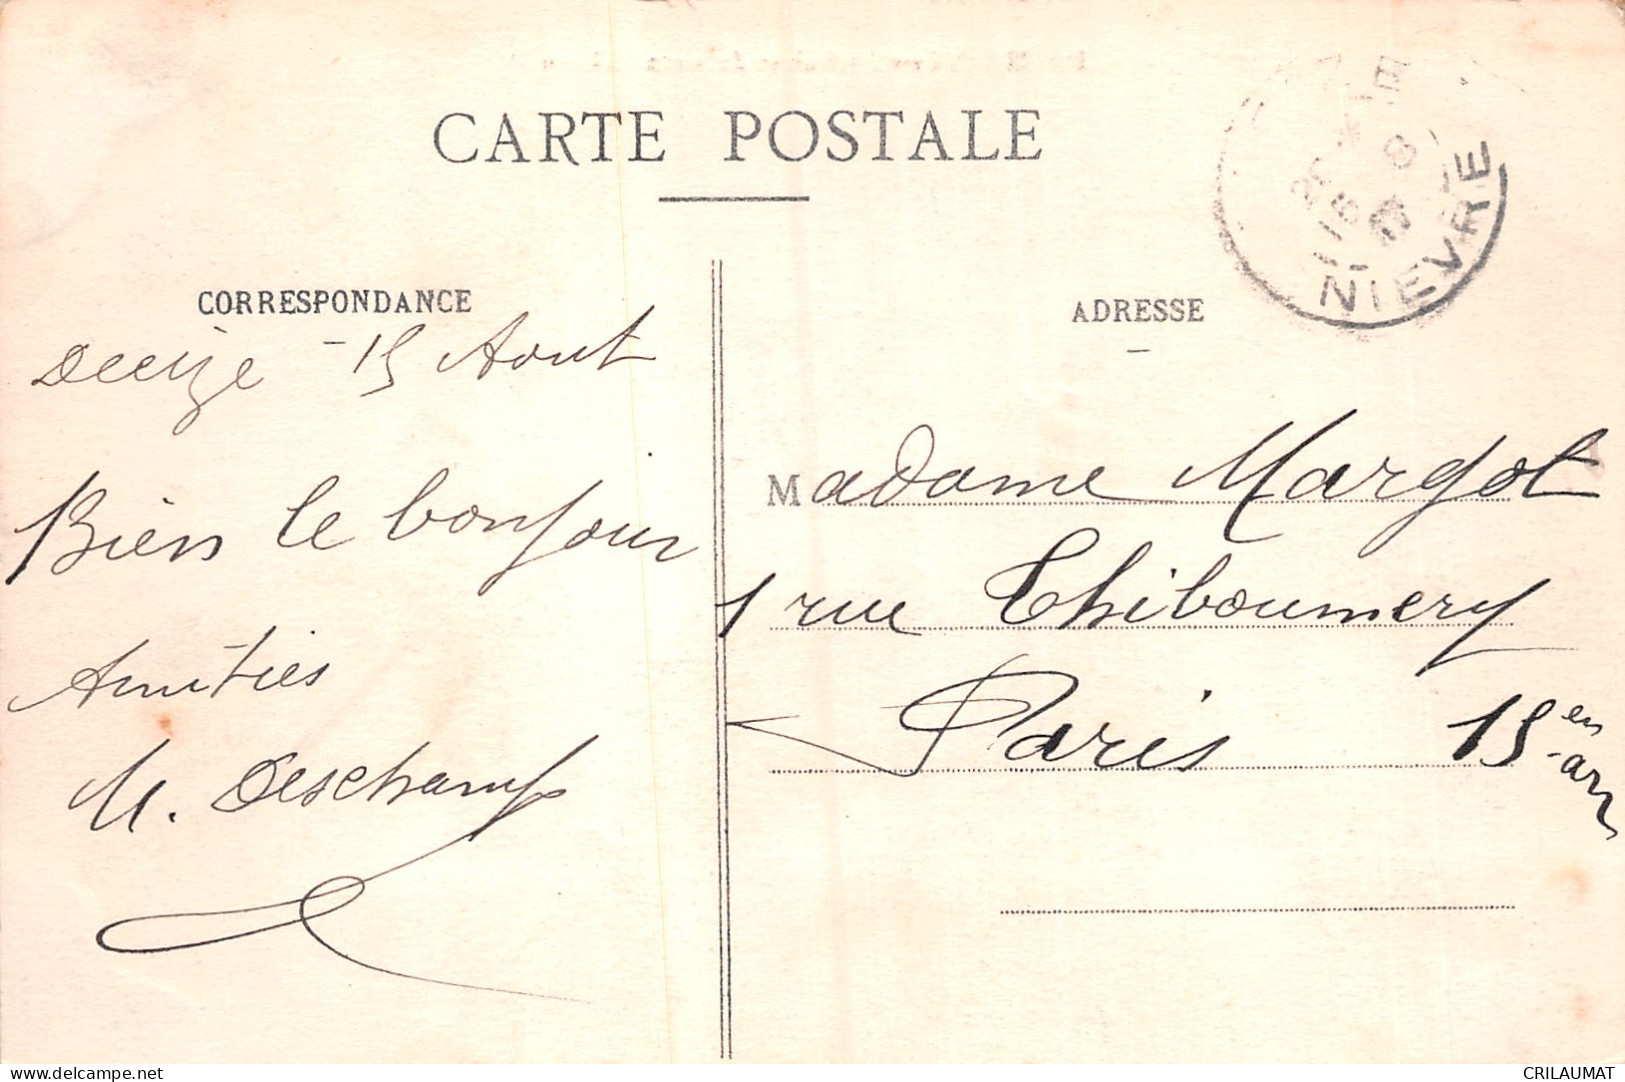 CARTE POSTALE
CORRESPONDANCE
Decize - 15 Aout
Bien le bonjour
Amitiés
M. Deschamps
ADRESSE
Madame Margot
1 rue Thiboumery
Paris 15 en arr
NIEVRE
CRILAUMAT